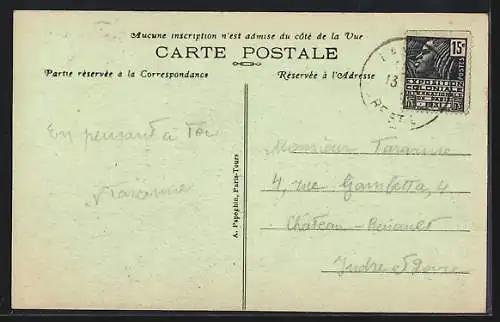 Aucune inscription n'est admise du côté de la Vue
CARTE POSTALE
Partie réservée à la Correspondance
Réservée à l'Adresse
15c
POSTES
EXPOSITION
COLONIALE
INTERNATIONALE
PARIS
1931
13
En pensant à Toi
A. Papeghin, Paris-Tours
Monsieur
4, rue Gambetta, 4
Château-Renault
Indre & Loire